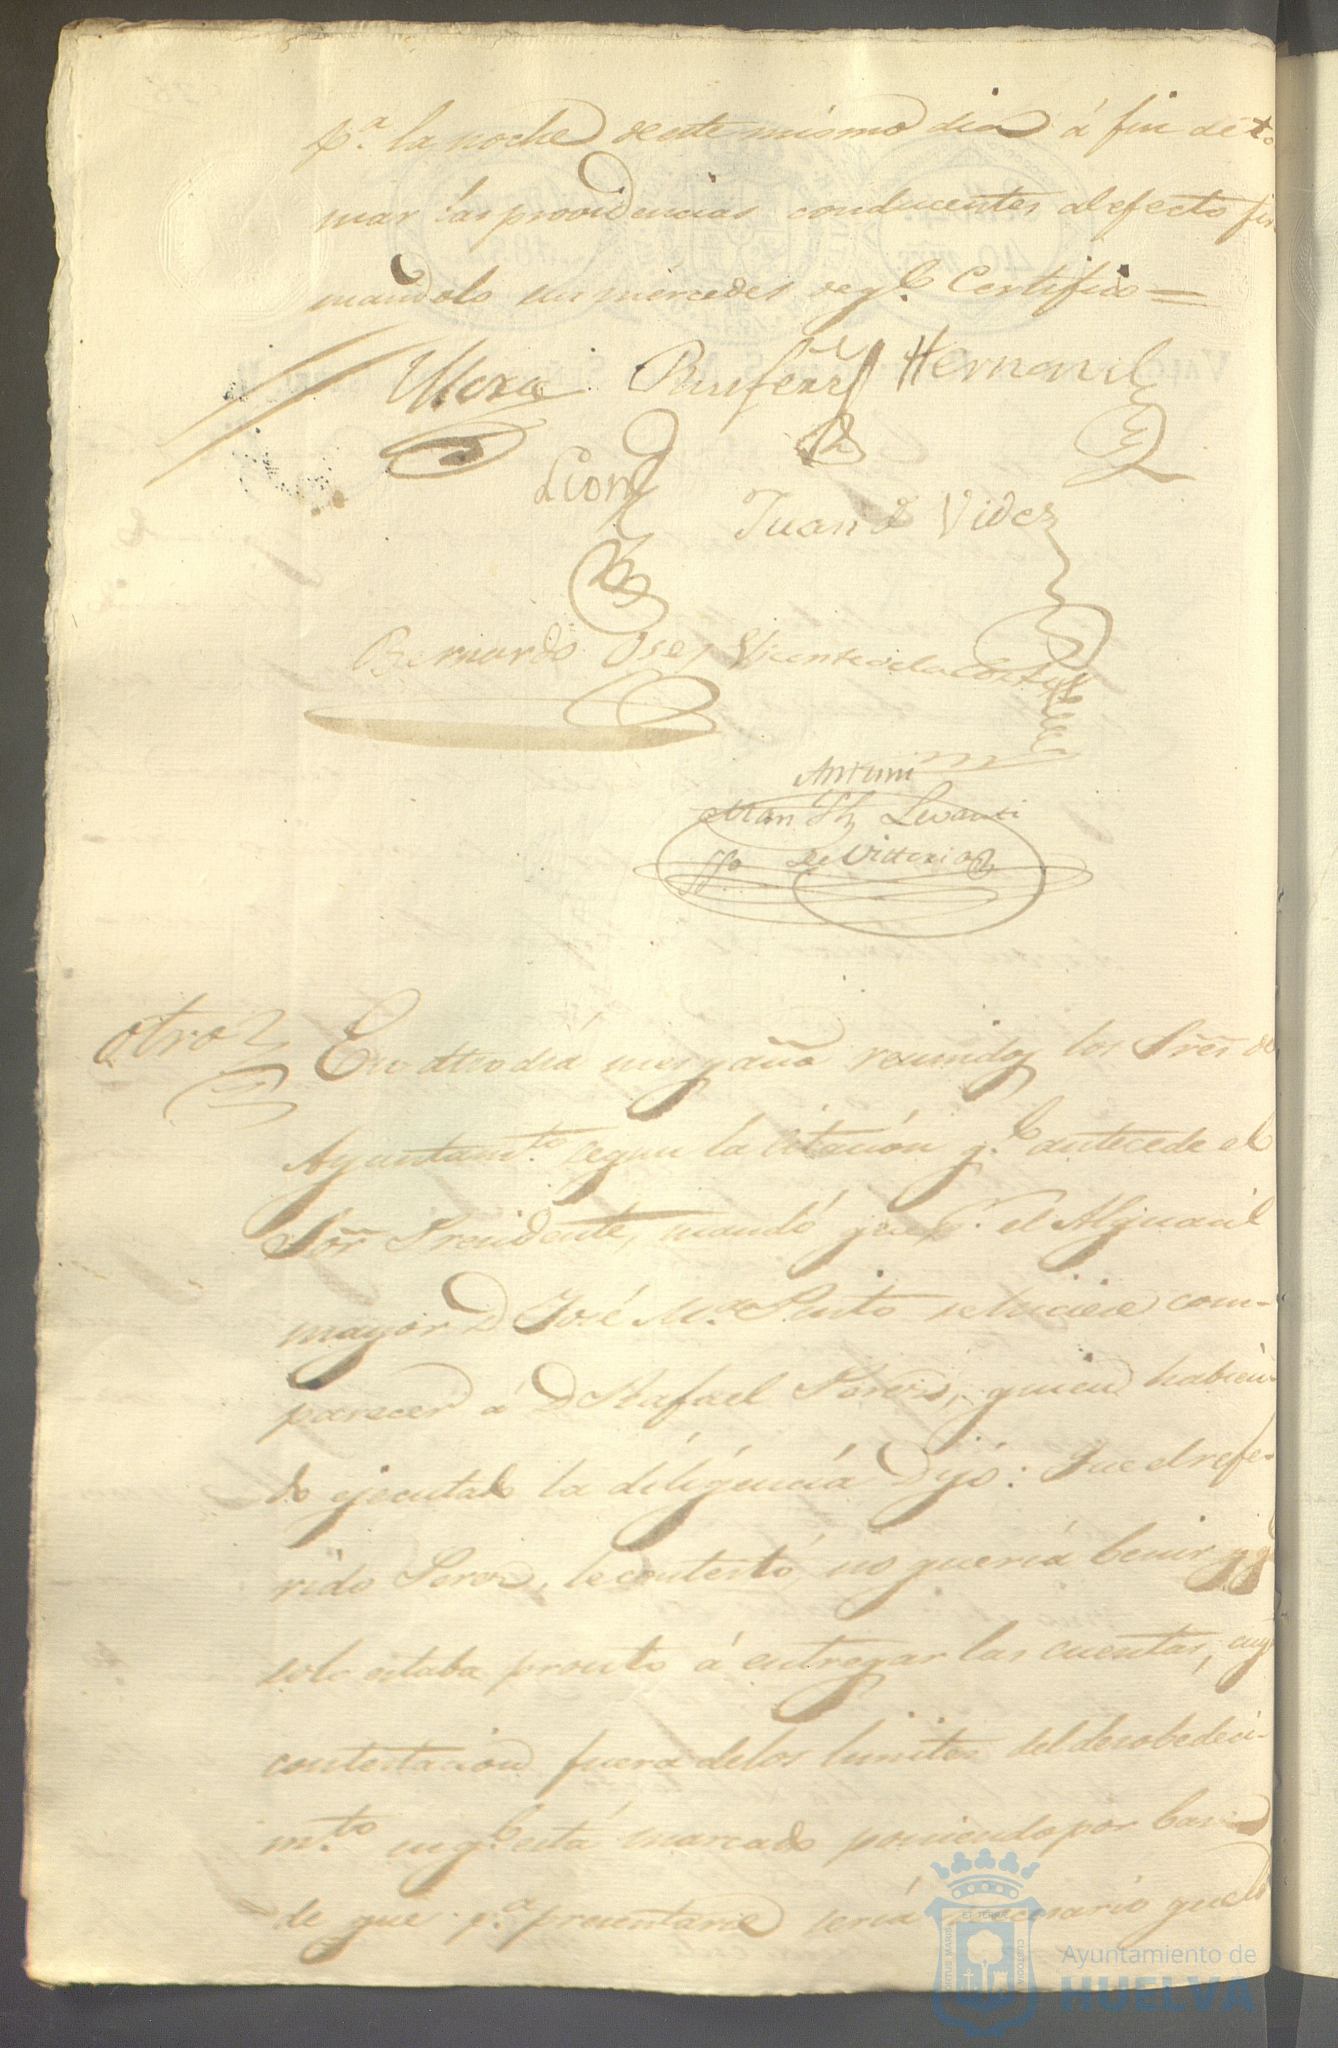 pª. la noche de este mismo dia á fin de to
mar las providencias conducentes al efecto fir
mandolo sus mercedes de q.e Certifico =
León
Juan de Vides
Bernardo Vicente de la Corte
Antemi
Levanti
de Vittoria
otro
En dho dia mes y año reunidos los Sres de
Ayuntamto. segun la citacion q.e antecede el
Sor Presidente, mandó que pr. el Alguacil
mayor D José Mª. Pinto se hiciese com-
parecer á D Rafael Perez, quien habien-
do ejecutado la diligencia Dijo: Que el refe-
rido Perez, le contestó, no queria benir y qe
solo estaba pronto á entregar las cuentas, cuya
contestacion fuera de los limites del desobedeci-
mto. en q.e está marcado poniendo por base
de que pª. presentarse seria necesario que lo
Ayuntamiento de
HUELVA